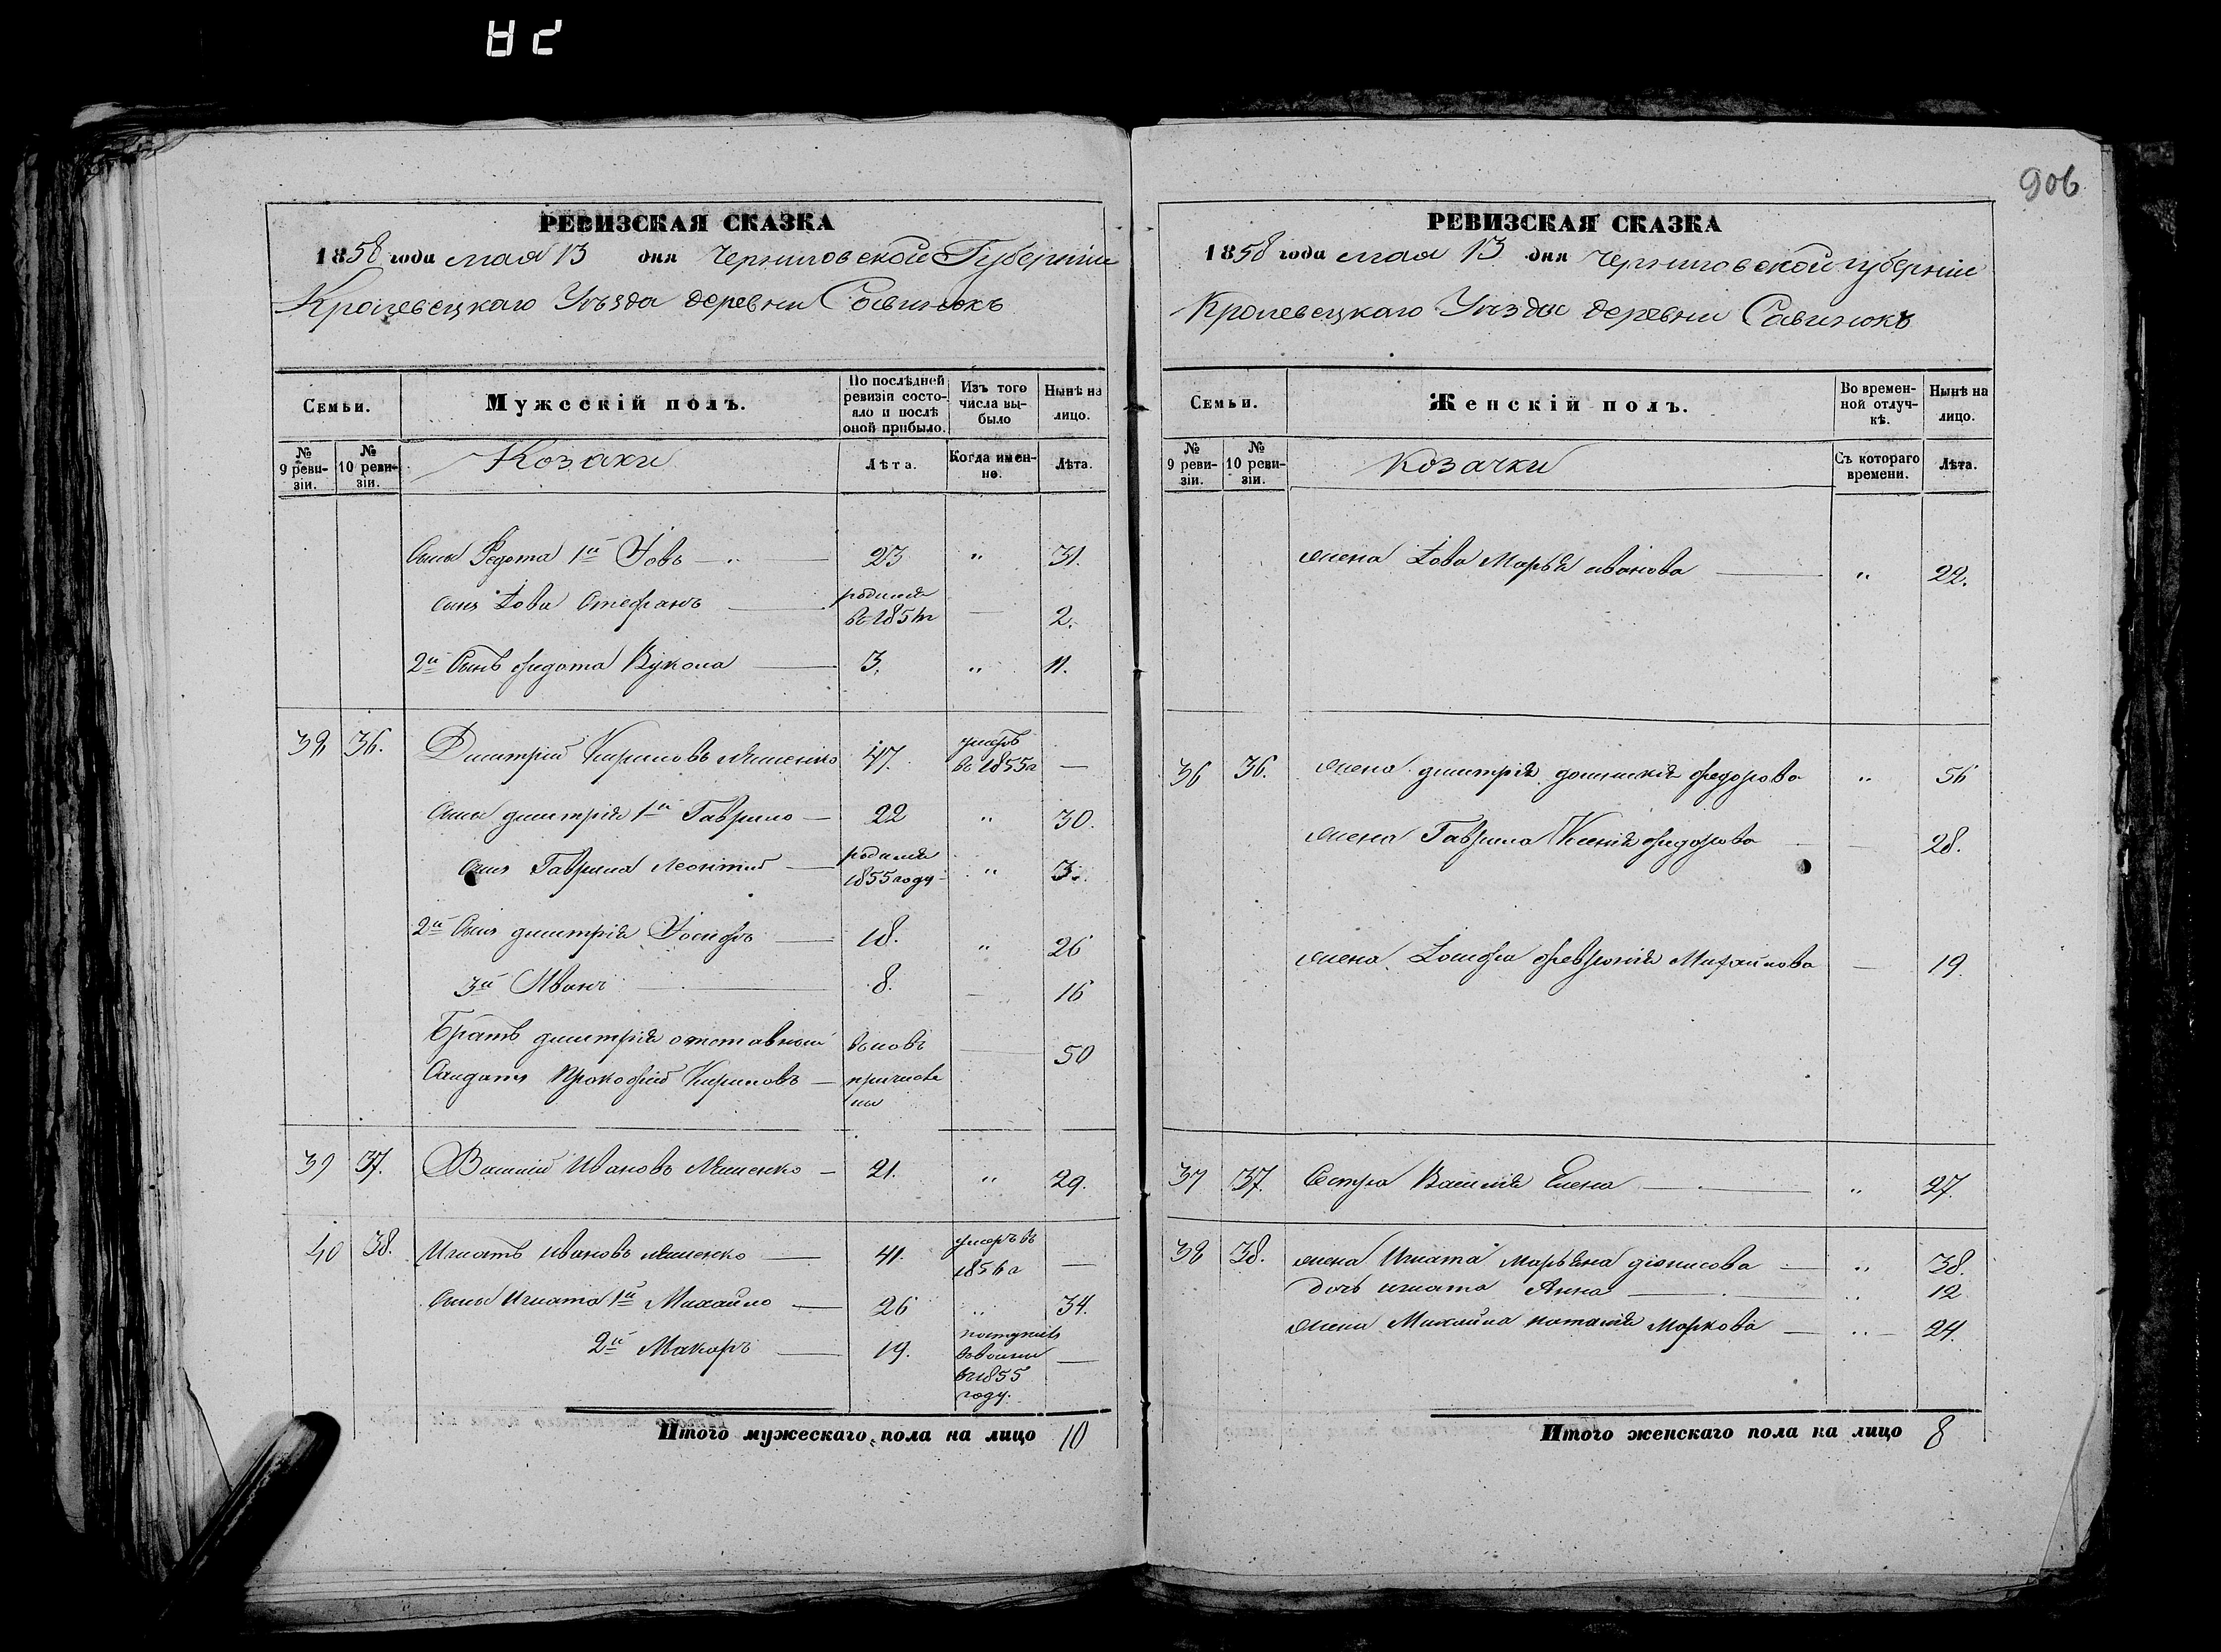 906
РЕВИЗСКАЯ СКАЗКА
1858 года мая 13 дня Черниговской Губернии
Кролевецкаго Уѣзда деревни Савинокъ
Семьи.
Мужескій полъ.
По послѣдней ревизіи состояло и послѣ оной прибыло.
Изъ того числа выбыло
Нынѣ на лицо.
№ 9 ревизіи.
№ 10 ревизіи.
Козаки
Лѣта.
Когда именно.
Лѣта.
Сынъ Федота 1й Іовъ — " — 23 " 31.
Сынъ Іова Стефанъ — родился въ 1856г — 2.
2й Сынъ Федота Вукола — 3. " 11.
38 36. Дмитрій Кириловъ 47. умеръ въ 1855г —
Сынъ Дмитрія 1й Гаврило — 22 " 30.
Сынъ Гаврила Леонтий — родился 1855 году " 3.
2й Сынъ Дмитрія Іосифъ — 18. " 26
3й Иванъ — 8. — 16
Братъ Дмитрія отставный вновь — 50
Солдатъ Прокофій Кириловъ — причисленъ
39 37. Василій Ивановъ — 21. " 29.
40 38. Игнатъ Ивановъ — 41. умеръ въ 1856г —
Сынъ Игната 1й Михайло — 26 " 34.
2й Макаръ — 19. поступилъ въ 1855 году. —
Итого мужескаго пола на лицо 10
РЕВИЗСКАЯ СКАЗКА
1858 года мая 13 дня Черниговской губерніи
Кролевецкаго Уѣзда деревни Савинокъ
Семьи.
Женскій полъ.
Во временной отлучкѣ.
Нынѣ на лицо.
№ 9 ревизіи.
№ 10 ревизіи.
Козачки
Съ котораго времени.
Лѣта.
жена Іова Марья иванова — " 22.
36 36. жена дмитрія домникія федорова " 56
жена Гаврила Ксенія федорова — 28.
жена Іосифа февронія Михайлова — 19.
37 37. Сестра Василія Елена — " 27.
38 38. жена Игната марьяна діонисова — " 38.
дочь игната Анна — " 12
жена Михайла наталія маркова — " — 24.
Итого женскаго пола на лицо 8